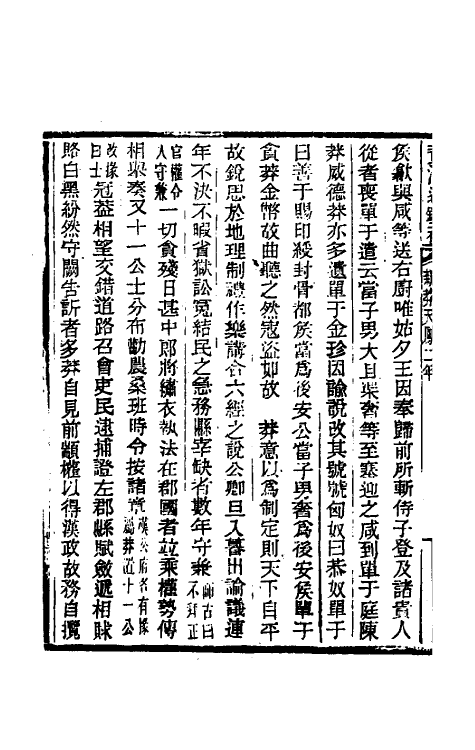 新莽天鳳二年
侯歙與咸等送右廚唯姑夕王因奉歸前所斬侍子登及諸貴人
從者喪單于遣云當子男大且渠奢等至塞迎之咸到單于庭陳
莽威德莽亦多遺單于金珍因諭說改其號號匈奴曰恭奴單于
曰善于賜印綬封骨都侯當為後安公當子男奢為後安侯單于
貪莽金幣故曲聽之然寇盜如故　莽意以為制定則天下自平
故銳思於地理制禮作樂講合六經之說公卿旦入暮出論議連
年不決不暇省獄訟冤結民之急務縣宰缺者數年守兼師古曰不拜正
官權令人守兼一切貪殘日甚中郎將繡衣執法在郡國者竝乘權勢傳
相舉奏又十一公士分布勸農桑班時令按諸章漢公府各有掾為莽置十一公
改掾曰士冠蓋相望交錯道路召會吏民逮捕證左郡縣賦斂遞相賕
賂白黑紛然守闕告訴者多莽自見前顓權以得漢政故務自攬